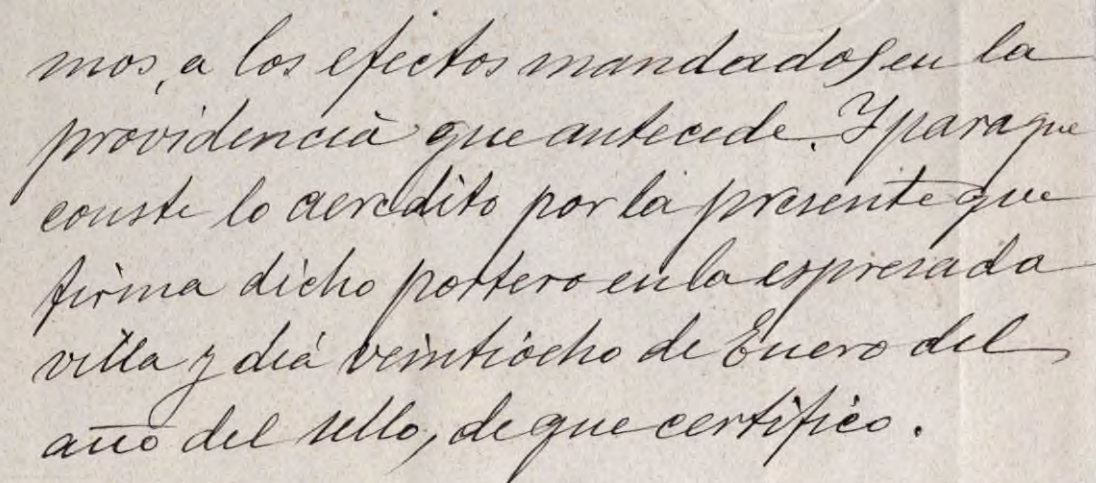 mos, a los efectos mandados en la
providencia que antecede. Y para que
conste lo acredito por la presente que
firma dicho portero en la espresada
villa y dia veintiocho de Enero del
año del sello, de que certifico.